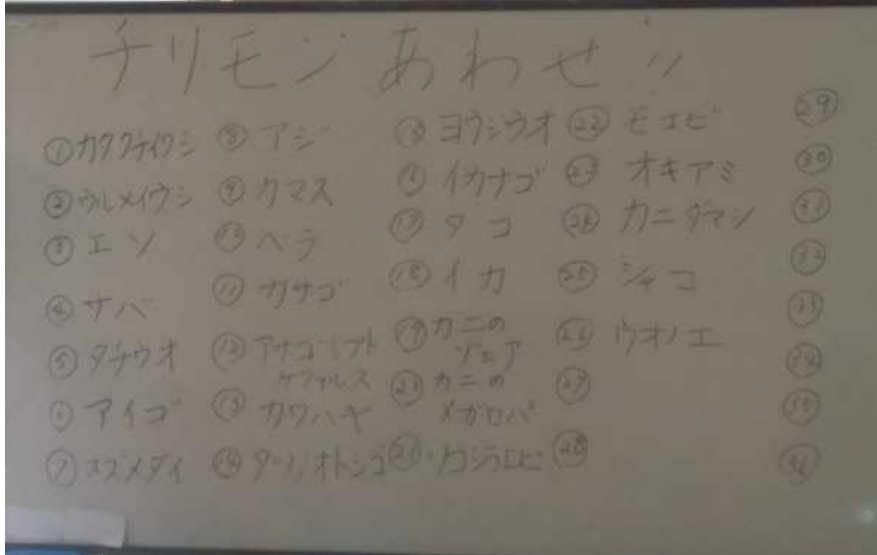 チリモンあわせ
①カタクチイワシ
②ウルメイワシ
③エソ
④サバ
⑤タチウオ
⑥アイゴ
⑦スズメダイ
⑧アジ
⑨カマス
⑩ベラ
⑪カサゴ
⑫アナゴレプト
ケファルス
⑬カワハギ
⑭タツノオトシゴ
⑮ヨウジウオ
⑯イカナゴ
⑰タコ
⑱イカ
⑲カニの
ゾエア
⑳カニの
メガロパ
㉑ソコシラエビ
㉒モエビ
㉓オキアミ
㉔カニダマシ
㉕シャコ
㉖ウオノエ
㉗
㉘
㉙
㉚
㉛
㉜
㉝
㉞
㉟
㊱